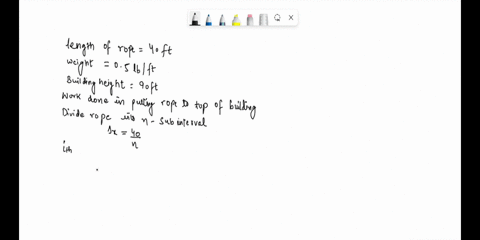 length of rope = 40 ft
weight = 0.5 lb/ft
Building height = 90 ft
Work done in pulling rope to top of building
Divide rope into n - sub interval
Δx = 40/n
ith